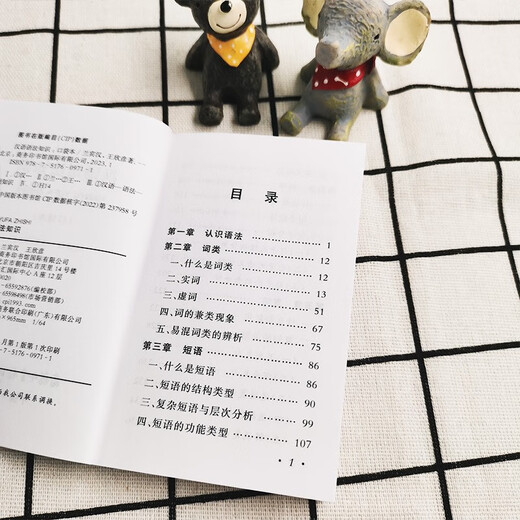 图书在版编目(CIP)数据
汉语语法知识:口袋本/兰宾汉,王玖盅著.
北京:商务印书馆国际有限公司,2023.1
ISBN 978-7-5176-0971-1
Ⅰ.①汉… Ⅱ.①兰…②王… Ⅲ.①汉语—语法—
知识 Ⅳ.①H14
中国版本图书馆CIP数据核字(2022)第237958号
YUFA ZHISHI
法知识
兰宾汉
国际有限公司
北京市朝阳区吉庆里14号楼
汇国际中心A座12层
0020
65592876(编校部)
65598498(市场营销部)
cpi1993.com
商务联合印刷(广东)有限公司
×965mm 1/64
月第1版第1次印刷
7-5176-0971-1
与我公司联系调换。
目 录
第一章 认识语法 1
第二章 词类 12
一、什么是词类 12
二、实词 13
三、虚词 51
四、词的兼类现象 67
五、易混词类的辨析 75
第三章 短语 86
一、什么是短语 86
二、短语的结构类型 90
三、复杂短语与层次分析 99
四、短语的功能类型 107
· 1 ·